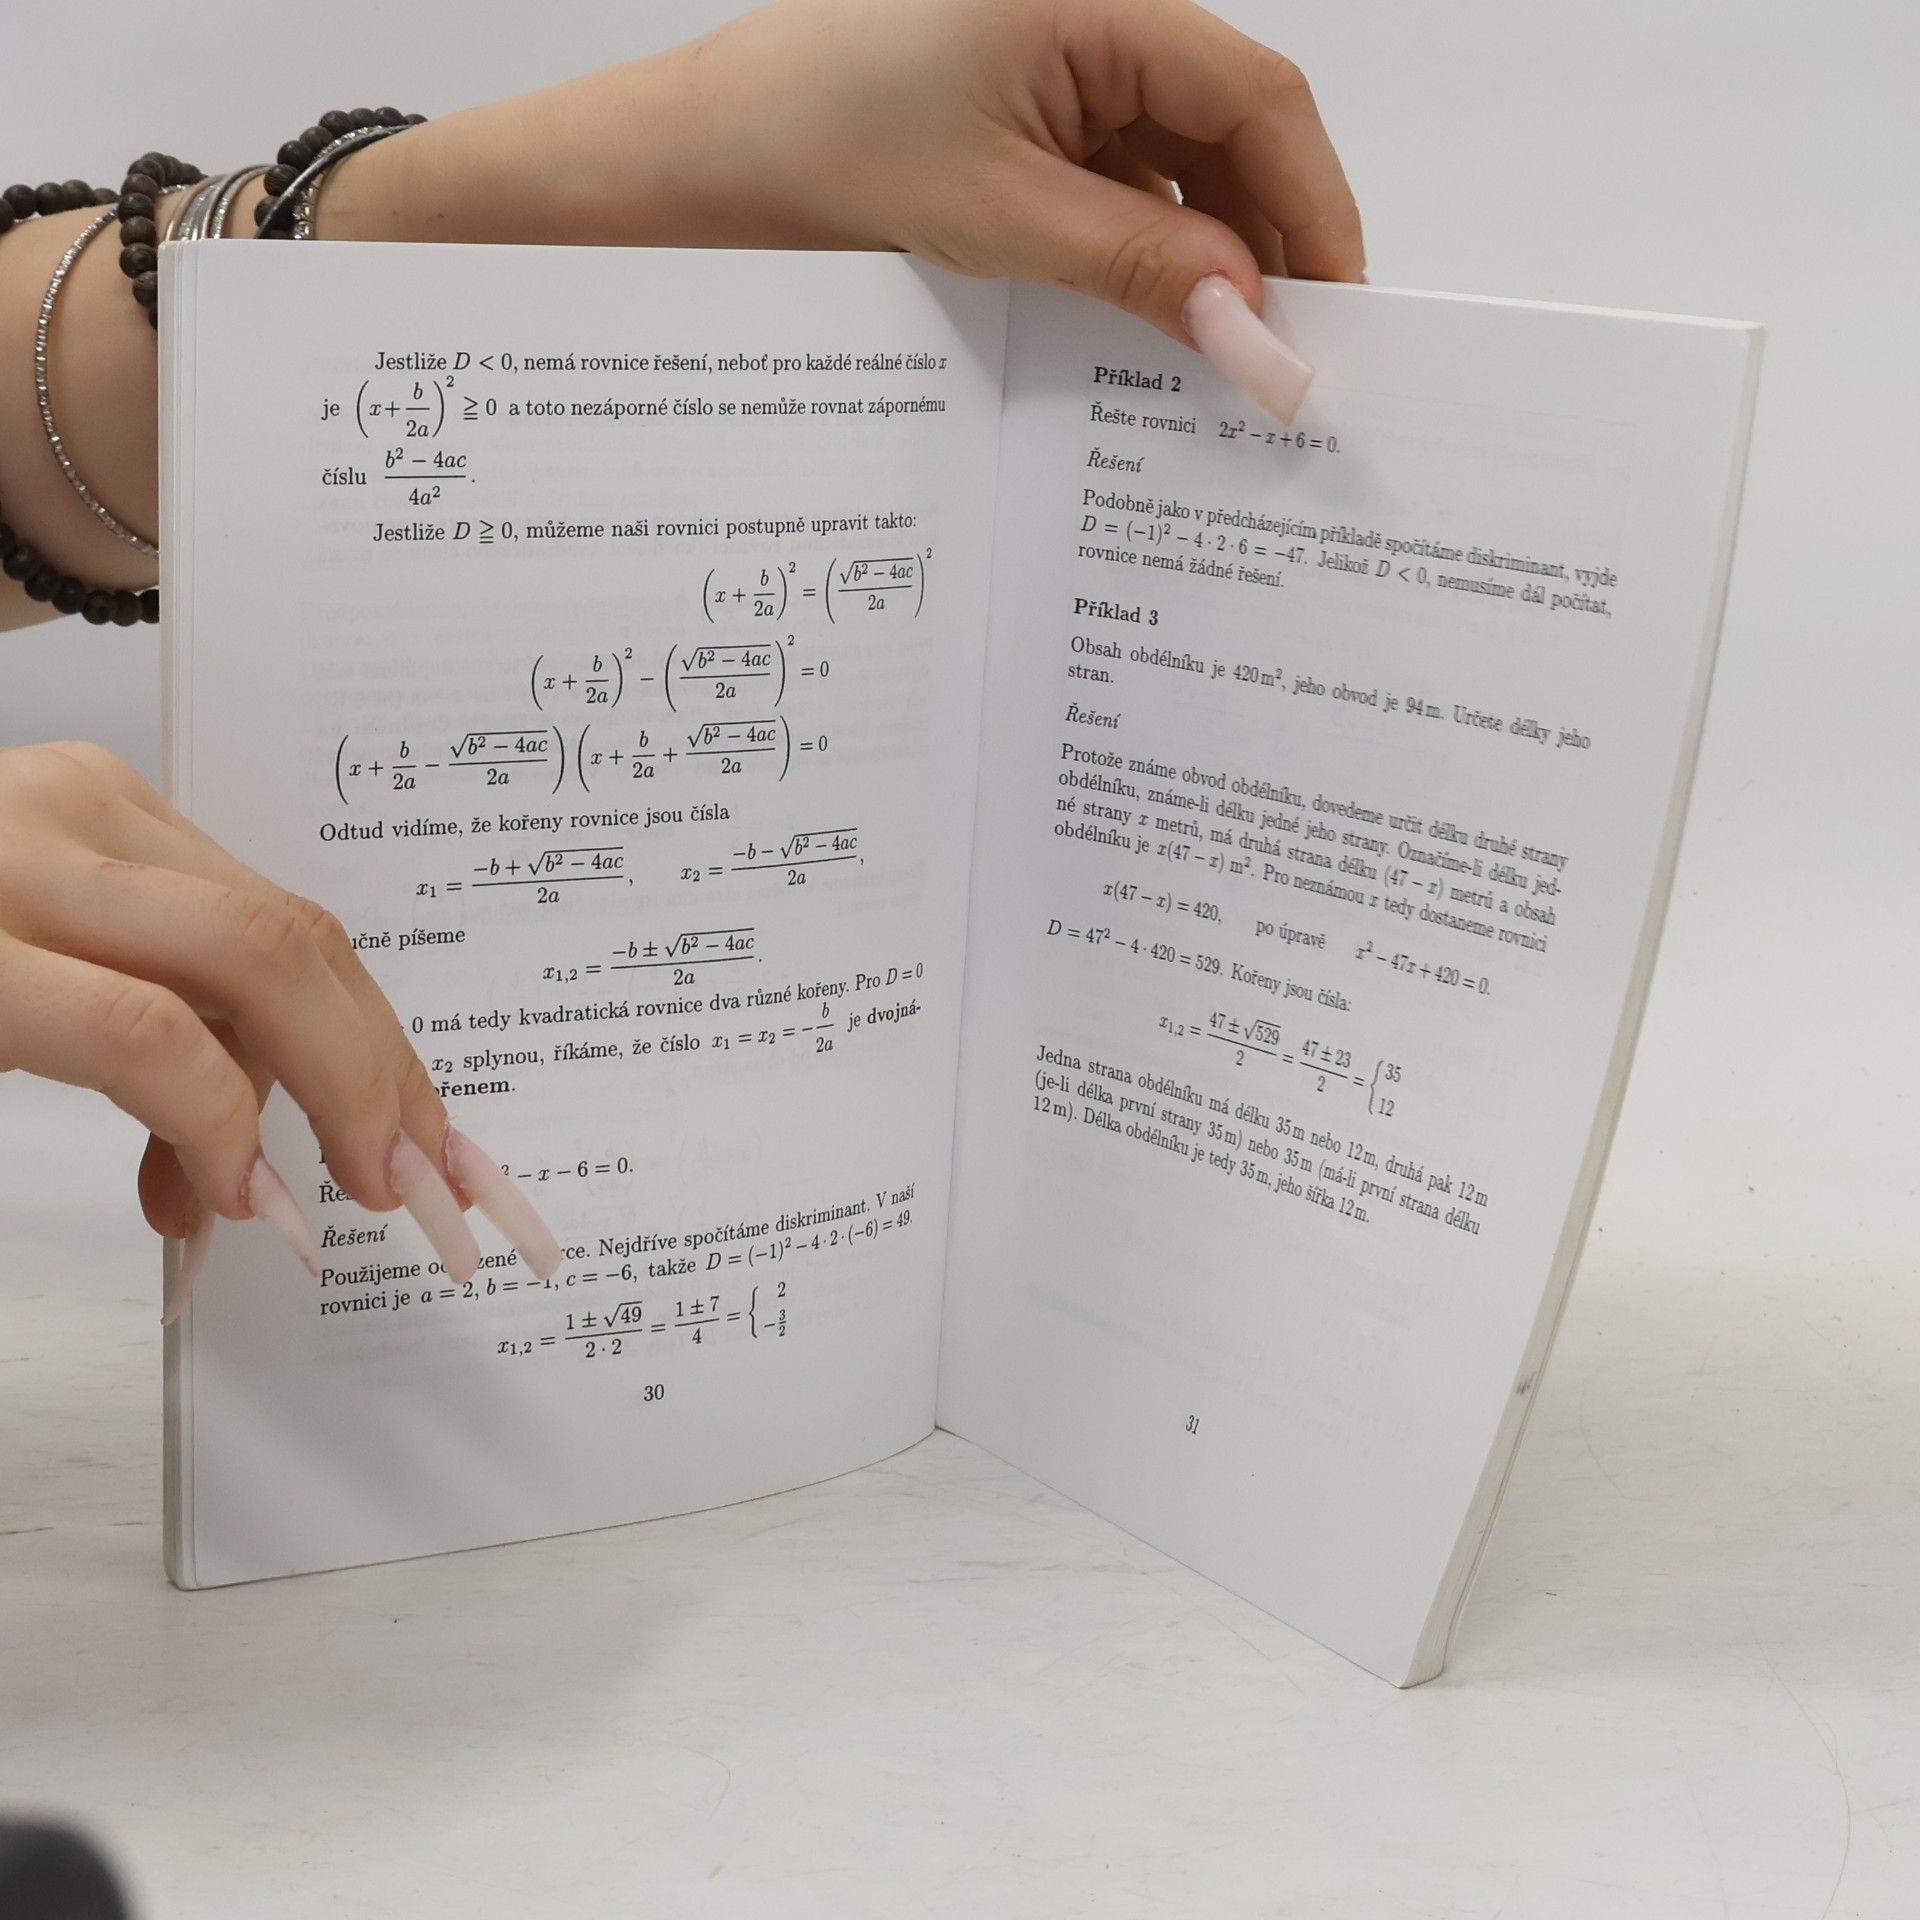 Jestliže D < 0, nemá rovnice řešení, neboť pro každé reálné číslo x
je (x + b/2a)² ≧ 0 a toto nezáporné číslo se nemůže rovnat zápornému
číslu (b² − 4ac)/4a².
Jestliže D ≧ 0, můžeme naši rovnici postupně upravit takto:
(x + b/2a)² = (√(b² − 4ac)/2a)²
(x + b/2a)² − (√(b² − 4ac)/2a)² = 0
(x + b/2a − √(b² − 4ac)/2a) (x + b/2a + √(b² − 4ac)/2a) = 0
Odtud vidíme, že kořeny rovnice jsou čísla
x₁ = (−b + √(b² − 4ac))/2a, x₂ = (−b − √(b² − 4ac))/2a,
píšeme
x₁,₂ = (−b ± √(b² − 4ac))/2a.
0 má tedy kvadratická rovnice dva různé kořeny. Pro D = 0
x₂ splynou, říkáme, že číslo x₁ = x₂ = −b/2a je dvojná-
² − x − 6 = 0.
Řešení
Použijeme Nejdříve spočítáme diskriminant. V naší
rovnici je a = 2, b = −1, c = −6, takže D = (−1)² − 4 · 2 · (−6) = 49.
x₁,₂ = (1 ± √49)/(2 · 2) = (1 ± 7)/4 = { 2
−3/2
30
Příklad 2
Řešte rovnici 2x² − x + 6 = 0.
Řešení
Podobně jako v předcházejícím příkladě spočítáme diskriminant, vyjde
D = (−1)² − 4 · 2 · 6 = −47. Jelikož D < 0, nemusíme dál počítat,
rovnice nemá žádné řešení.
Příklad 3
Obsah obdélníku je 420 m², jeho obvod je 94 m. Určete délky jeho
stran.
Řešení
Protože známe obvod obdélníku, dovedeme určit délku druhé strany
obdélníku, známe-li délku jedné jeho strany. Označíme-li délku jed-
né strany x metrů, má druhá strana délku (47 − x) metrů a obsah
obdélníku je x(47 − x) m². Pro neznámou x tedy dostaneme rovnici
x(47 − x) = 420, po úpravě x² − 47x + 420 = 0.
D = 47² − 4 · 420 = 529. Kořeny jsou čísla:
x₁,₂ = (47 ± √529)/2 = (47 ± 23)/2 = { 35
12
Jedna strana obdélníku má délku 35 m nebo 12 m, druhá pak 12 m
(je-li délka první strany 35 m) nebo 35 m (má-li první strana délku
12 m). Délka obdélníku je tedy 35 m, jeho šířka 12 m.
31